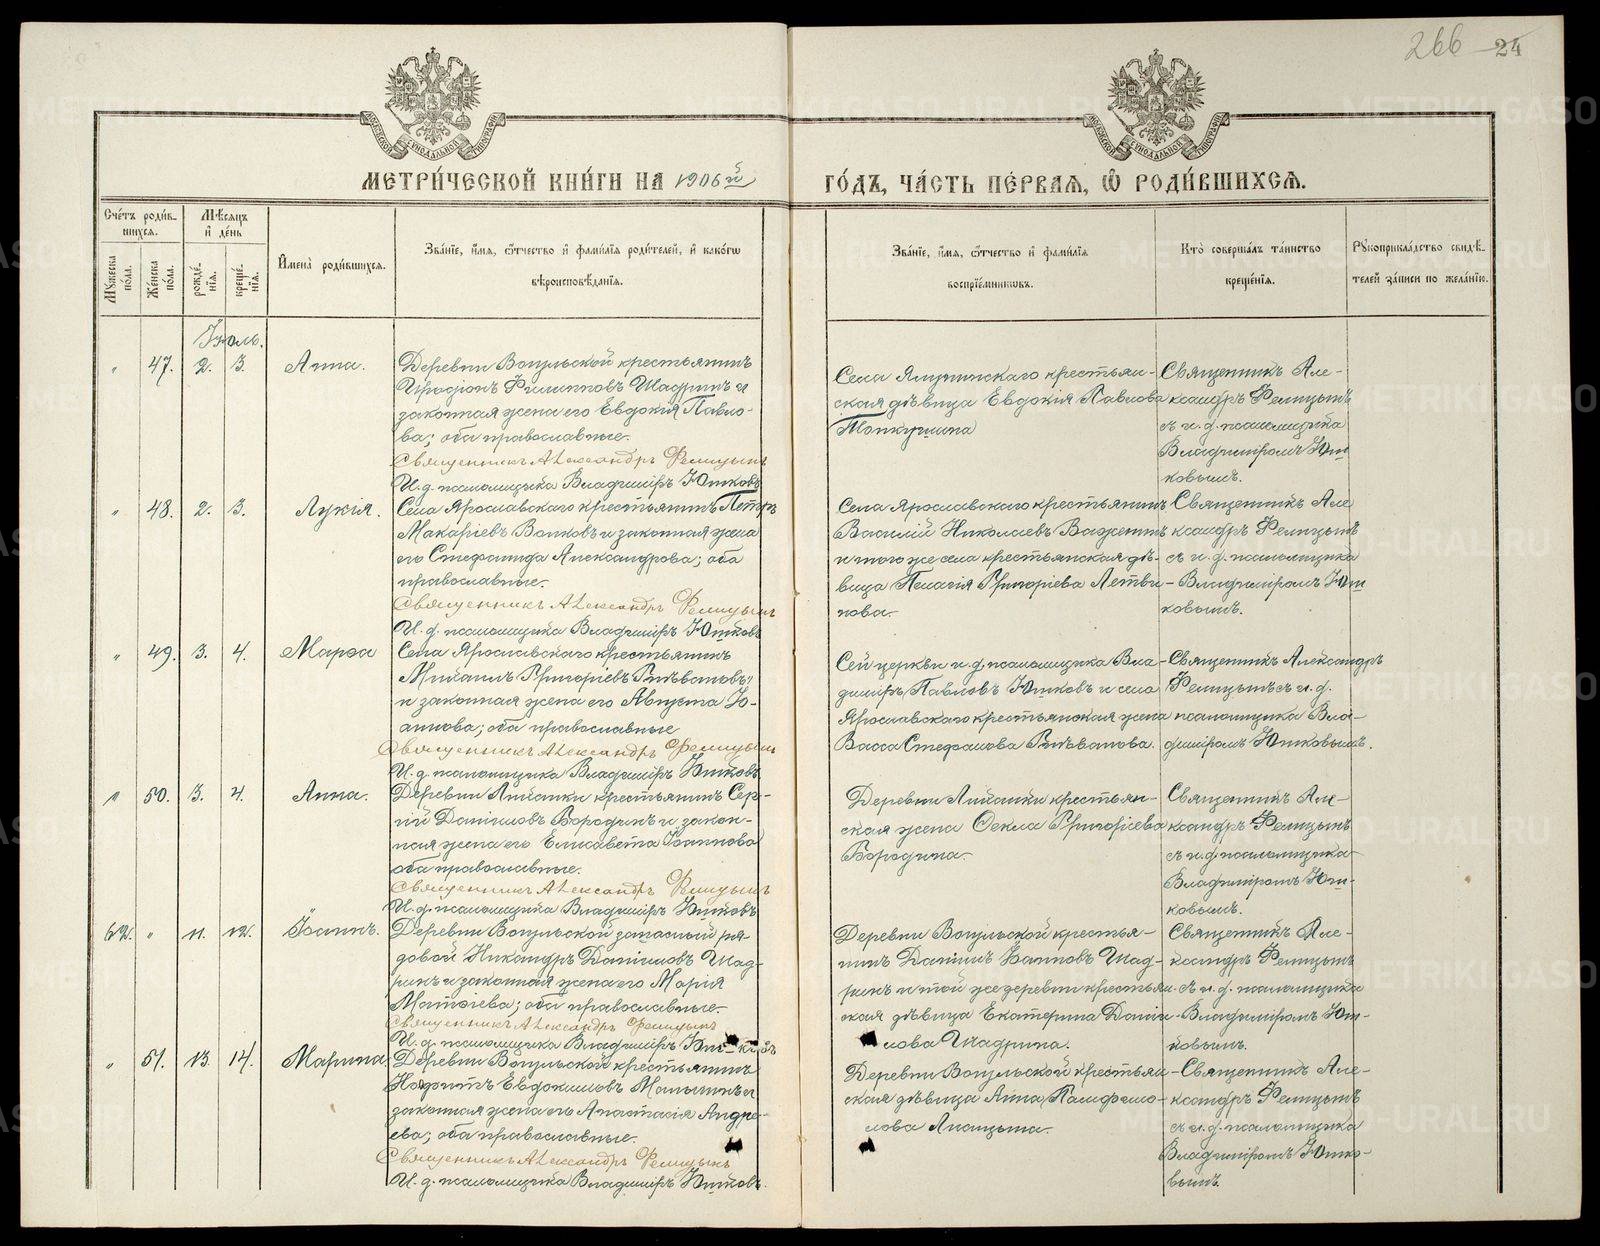 266 24
МЕТРИ́ЧЕСКОЙ КНИ́ГИ НА 1906й
ГО́ДЪ, ЧА́СТЬ ПЕ́РВАЯ, Ѽ РОДИ́ВШИХСЯ.
Сче́тъ роди́в-
шихся.
Мѣ́сяцъ
и де́нь
Му́жеска
по́ла.
Же́нска
по́ла.
рожде́-
нія.
креще́-
нія.
И́мена̀ роди́вшихся.
Зва́ніе, и́мя, ѻ́тчество и фами́лія роди́телей, и како́гѡ
вѣроисповѣ́данія.
Зва́ніе, и́мя, ѻ́тчество и фами́лія
воспріе́мникѡвъ.
Кто̀ соверша́лъ та́инство
креще́нія.
Рꙋкоприкла́дство свидѣ́-
телей за́писи по жела́нію.
Іюль.
" 47. 2. 3. Анна.
Деревни Вогульской крестьянинъ
Иродіонъ Филипповъ Шадринъ и
законная жена его Евдокія Павло-
ва; оба православные.
Священникъ Александръ Фелицынъ
И. д. псаломщика Владиміръ Юшковъ
крестьян-
ская дѣвица Евдокія Павлова
Священникъ Але-
ксандръ Фелицынъ
съ и. д. псаломщика
Владиміромъ Юш-
ковымъ.
" 48. 2. 3. Лукія.
Села Ярославскаго крестьянинъ Петръ
Макаріевъ Волковъ и законная жена
его Стефанида Александрова; оба
православные.
Священникъ Александръ Фелицынъ
И. д. псаломщика Владиміръ Юшковъ
Села Ярославскаго крестьянинъ
Василій Николаевъ Важенинъ
и того же села крестьянская дѣ-
вица Пелагія Григоріева Летви-
нова.
Священникъ Але
ксандръ Фелицынъ
съ и. д. псаломщика
Владиміромъ Юш
ковымъ.
" 49. 3. 4. Марѳа
Села Ярославскаго крестьянинъ
Михаилъ Григоріевъ
и законная жена его Августа Іо-
аннова; оба православные
Священникъ Александръ Фелицынъ
И. д. псаломщика Владиміръ Юшковъ
Сей церкви и. д. псаломщика Вла-
диміръ Павловъ Юшковъ и села
Ярославскаго крестьянская жена
Васса Стефанова
Священникъ Александръ
Фелицынъ съ и. д.
псаломщика Вла-
диміромъ Юшковымъ.
" 50. 3. 4. Анна.
Деревни крестьянинъ Сер-
гій Даніиловъ Бородинъ и закон-
ная жена его Елисавета Іоаннова
оба православные.
Священникъ Александръ Фелицынъ
И. д. псаломщика Владиміръ Юшковъ
Деревни крестьян-
ская жена Ѳекла Григоріева
Бородина.
Священникъ Але-
ксандръ Фелицынъ
съ и. д. псаломщика
Владиміромъ Юш-
ковымъ.
62. " 11. 12. Іоаннъ.
Деревни Вогульской запасный ря-
довой Никандръ Даніиловъ Шад-
ринъ и законная жена его Марія
Матѳіева; оба православные.
Священникъ Александръ Фелицынъ
И. д. псаломщика Владиміръ Юшковъ
Деревни Вогульской крестья-
нинъ Даніилъ Іоанновъ Шад-
ринъ и той же деревни крестьян-
ская дѣвица Екатерина Даніи-
лова Шадрина.
Священникъ Але-
ксандръ Фелицынъ
съ и. д. псаломщика
Владиміромъ Юш-
ковымъ.
" 51. 13. 14. Марина
Деревни Вогульской крестьянинъ
Евдокимовъ и
законная жена его Анастасія Андре-
ева; оба православные.
Священникъ Александръ Фелицынъ
И. д. псаломщика Владиміръ Юшковъ.
Деревни Вогульской крестьян-
ская дѣвица Анна Памфило-
лова
Священникъ Але-
ксандръ Фелицынъ
съ и. д. псаломщика
Владиміромъ Юшко-
вымъ.